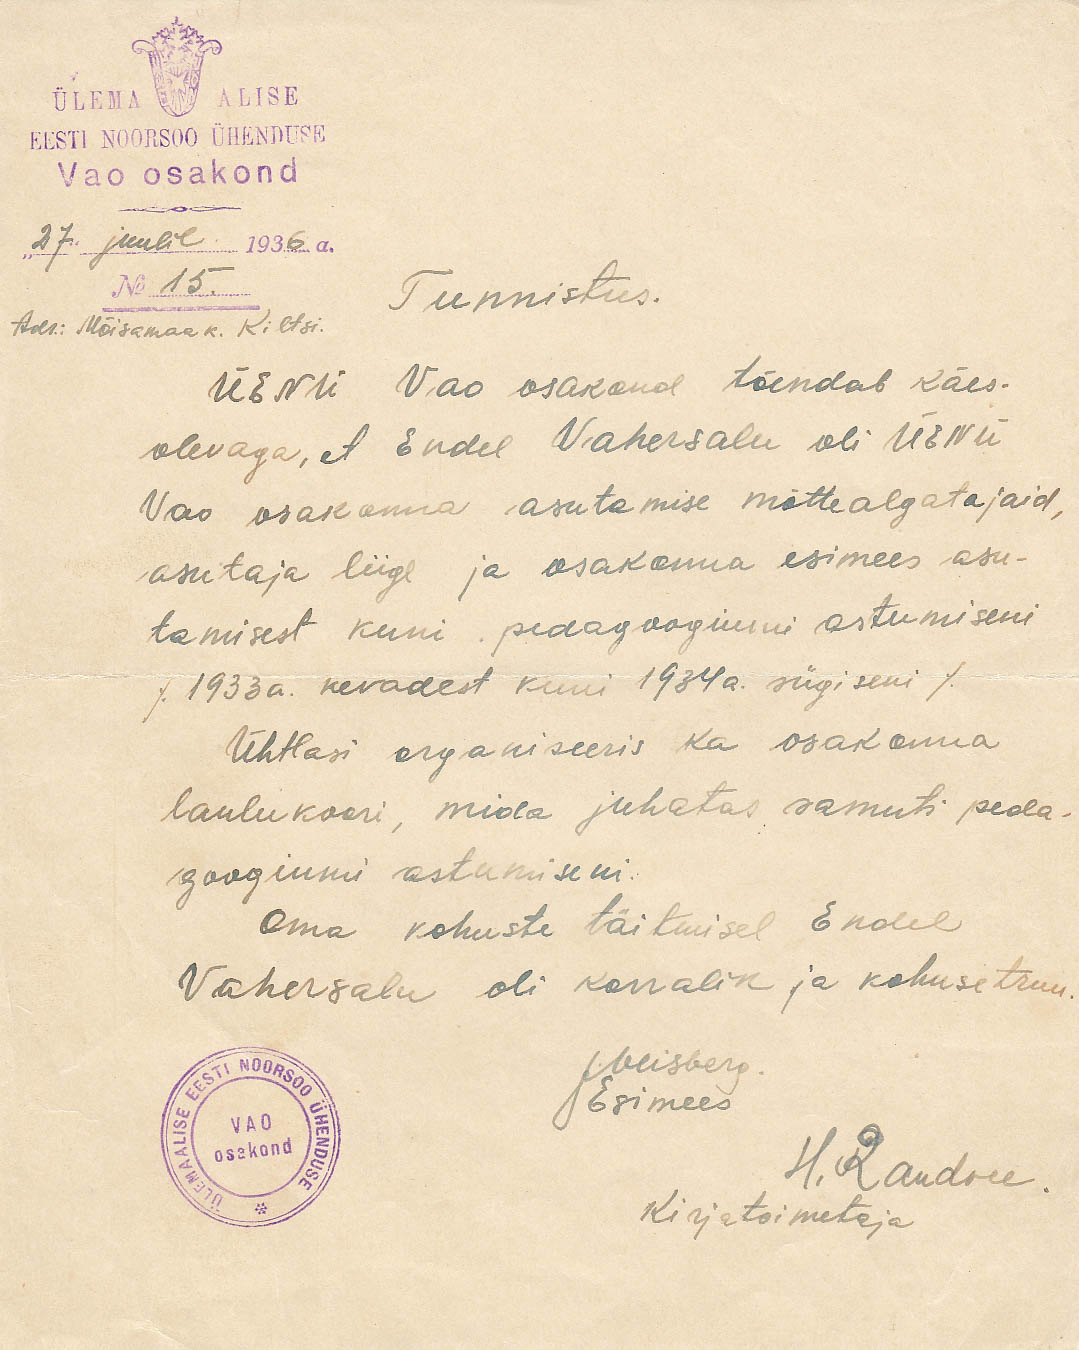 ÜLEMAALISE
EESTI NOORSOO ÜHENDUSE
Vao osakond
"27" juulil 1936 a.
№ 15.
Adr.: Mõisamaa k. Kiltsi.
Tunnistus.
ÜENÜ Vao osakond tõendab käes-
olevaga, et Endel Vahersalu oli ÜENÜ
Vao osakonna asutamise mõttealgatajaid,
asutaja liige ja osakonna esimees asu-
tamisest kuni pedagoogiumi astumiseni
/. 1933 a. kevadest kuni 1934 a. sügiseni /.
Ühtlasi organiseeris ka osakonna
laulukoori, mida juhatas samuti peda-
googiumi astumiseni.
Oma kohuste täitmisel Endel
Vahersalu oli korralik ja kohusetruu.
Esimees
H. Randree.
Kirjatoimetaja
ÜLEMAALISE EESTI NOORSOO ÜHENDUSE
VAO
osakond